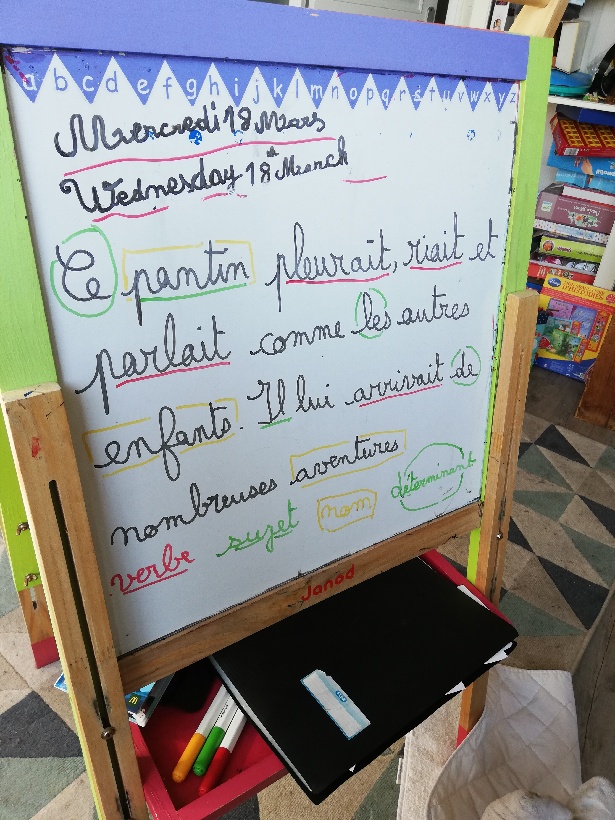 a b c d e f g h i j k l m n o p q r s t u v w x y z
Mercredi 18 Mars
Wednesday 18th March
Ce pantin pleurait, riait et
parlait comme les autres
enfants. Il lui arrivait de
nombreuses aventures
verbe sujet nom déterminant
Janod